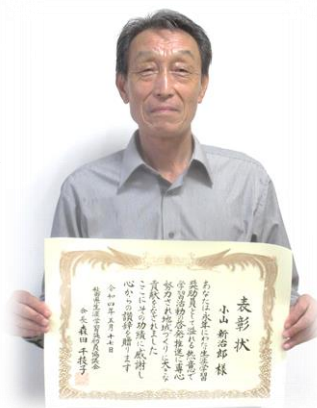 表彰状
小山 新治郎 様
あなたは永年にわたり生涯学習
奨励員として溢れる熱意で
学習活動の啓発推進に専心
努力され地域づくりに大きな
貢献をなされました
ここにその功績に感謝し
心からの讃辞を贈ります
令和四年五月十七日
生涯学習奨励員協議会
会長 森田 千技子